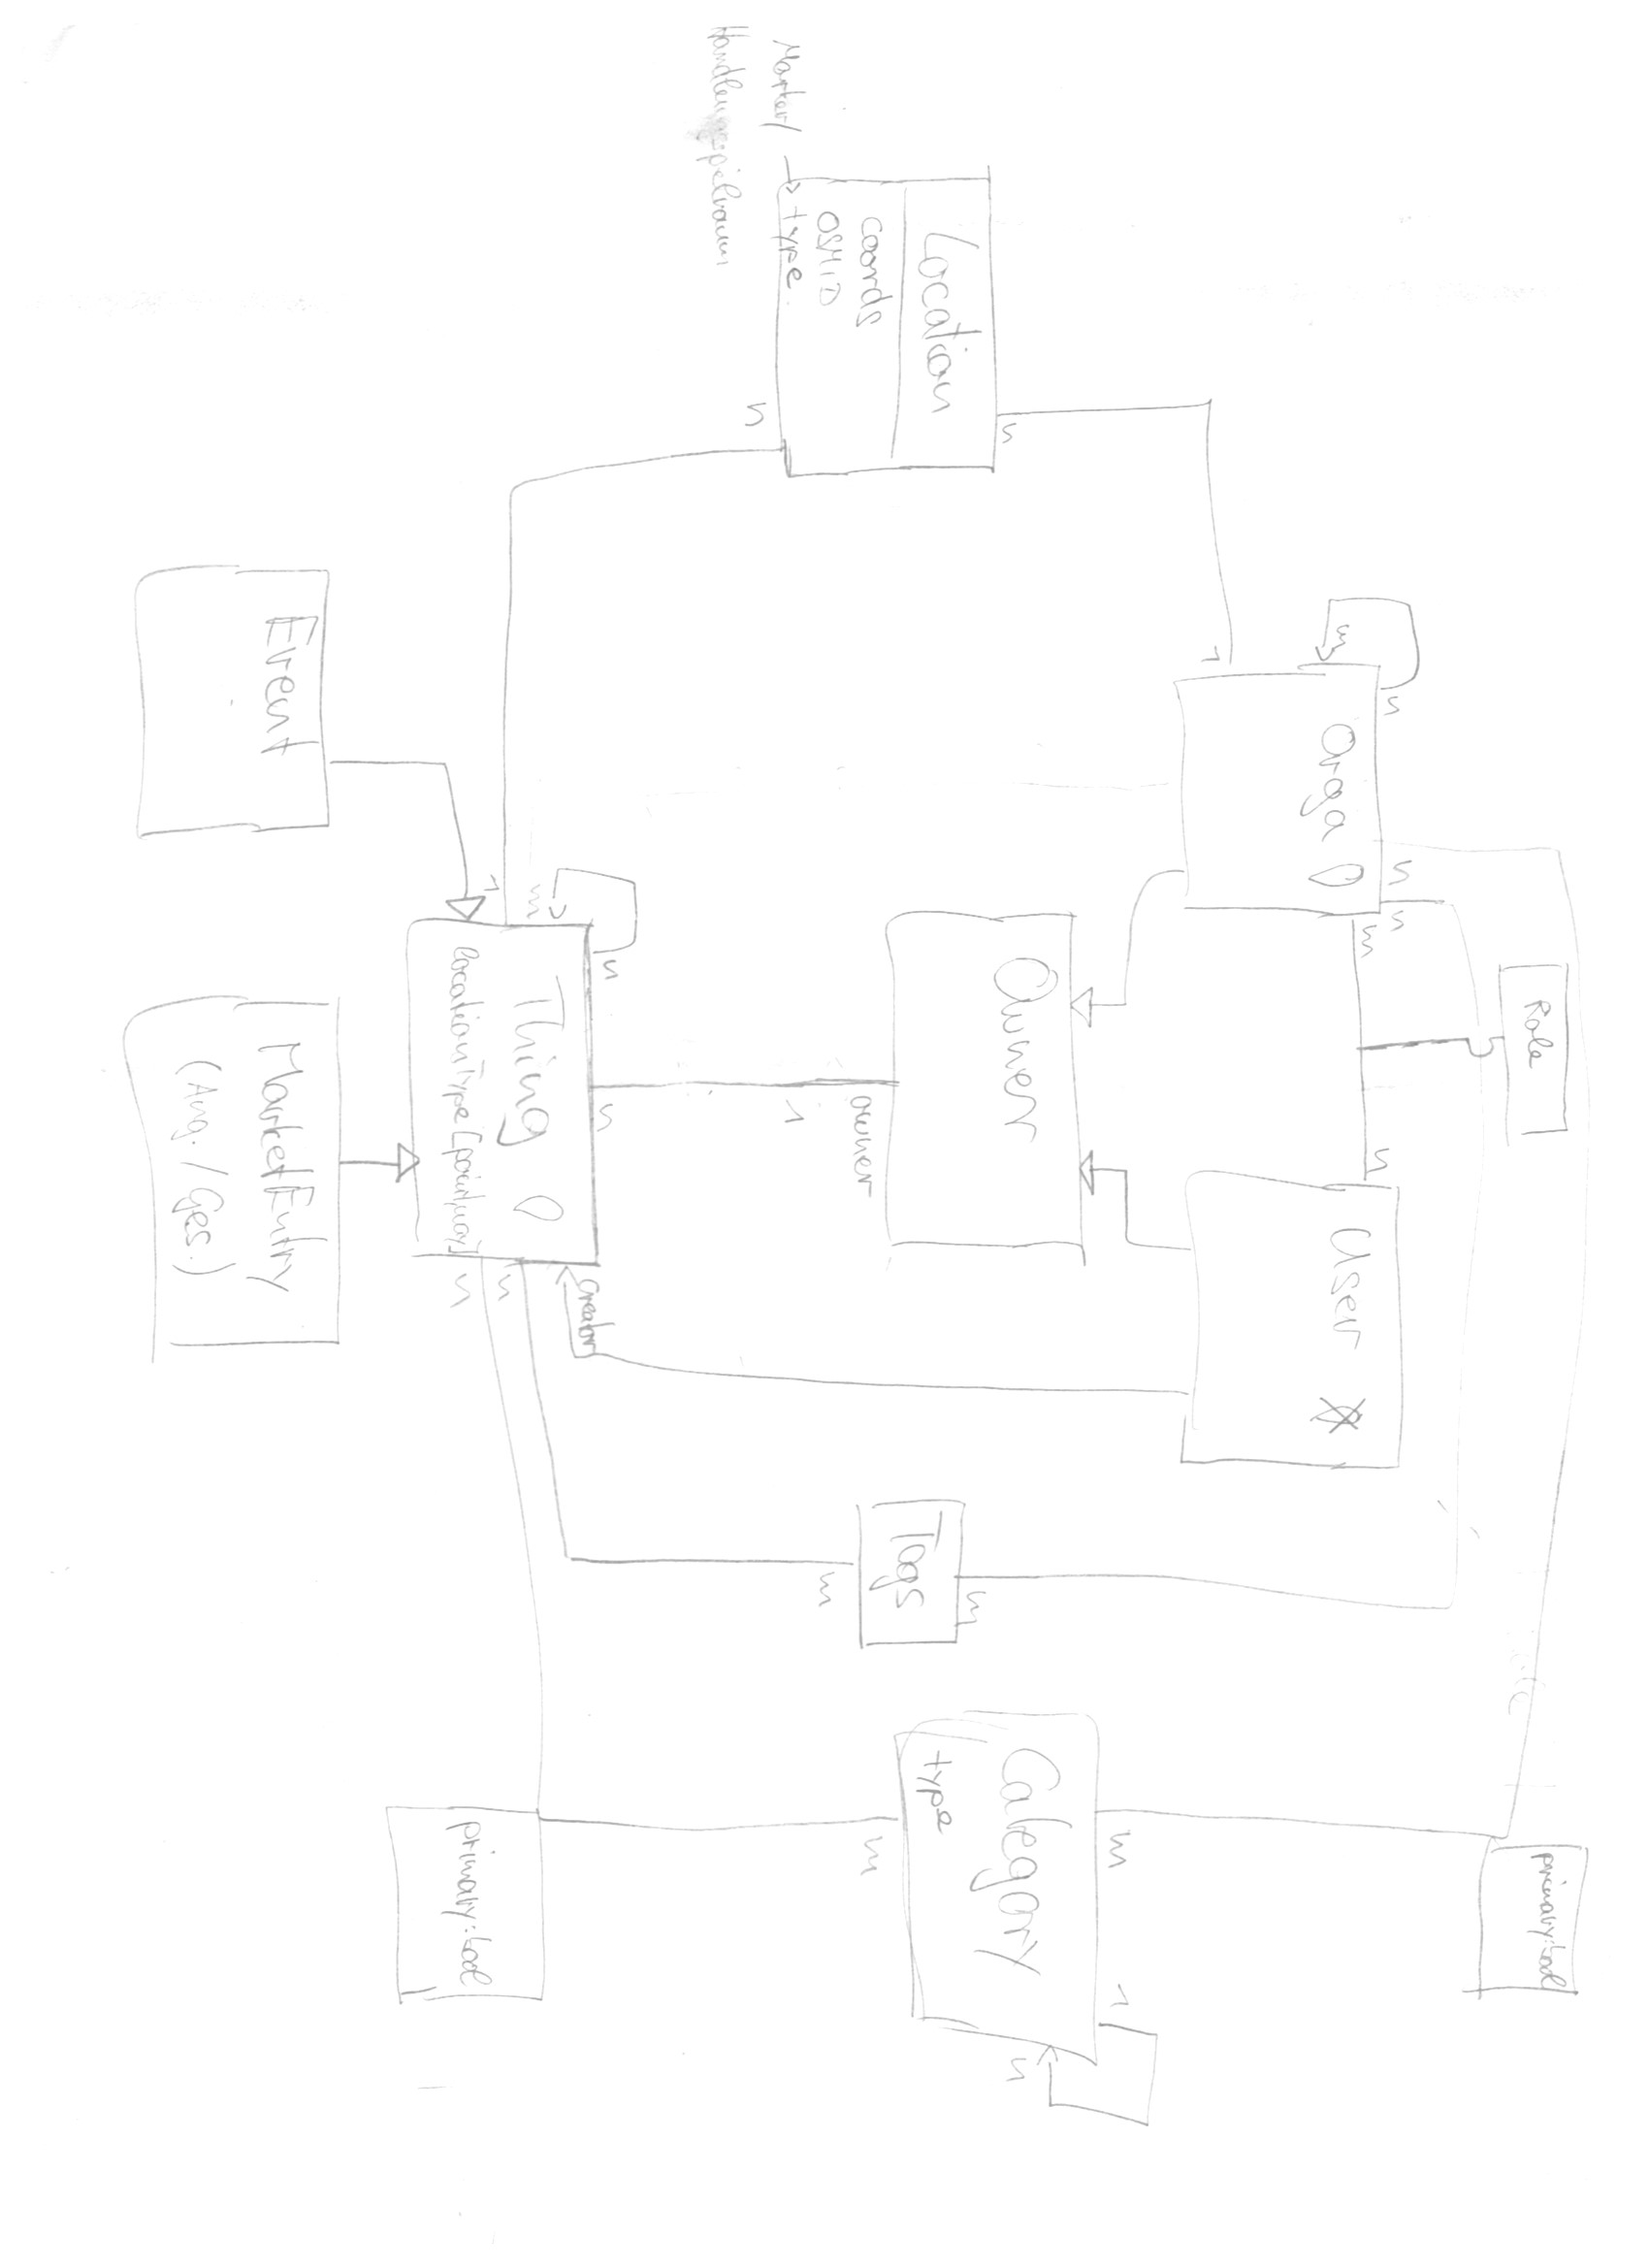 Role
primary:bool
n
n
n
m
n
m
Orga
User
1
m
1
n
Category
type
n
Owner
n
Location
coords
OSMID
type
Marker/
Handlungsspielraum
n
m
Tags
m
m
owner
1
n
n
creator
m
Thing
1
locationType [point,way]
n
n
primary:bool
Event
MarketEntry
(Ang. / Ges.)